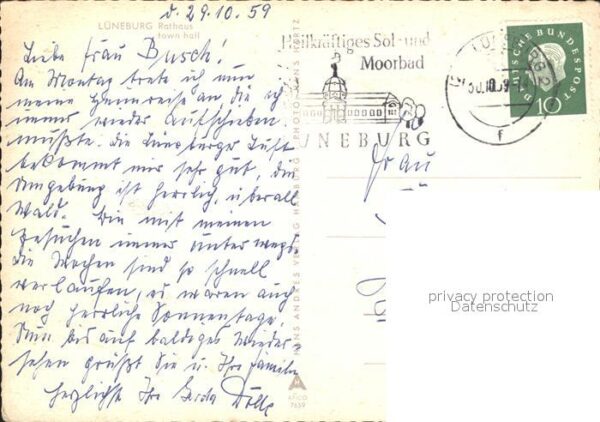 d. 29.10.59
LÜNEBURG Rathaus
town hall
Liebe Frau Busch!
Am Montag trete ich nun
meine Heimreise an die ich
immer wieder aufschieben
mußte. Die Lüneburger Luft
bekommt mir sehr gut, die
Umgebung ist herrlich, überall
Wald. Bin mit meinen
Besuchen immer unterwegs
die Wochen sind so schnell
verlaufen, es waren auch
noch herrliche Sonnentage.
Nun bis auf baldiges Wieder-
sehen grüßt Sie u. Ihre Familie
herzlichst Ihre Gerda
Heilkräftiges Sol- und
Moorbad
LÜNEBURG
HANS ANDRES VERLAG HAMBURG PHOTO HANS HARTZ
ANCO
7659
DEUTSCHE BUNDESPOST
10
LÜNEBURG 2
30.10.59
f
Frau
privacy protection
Datenschutz